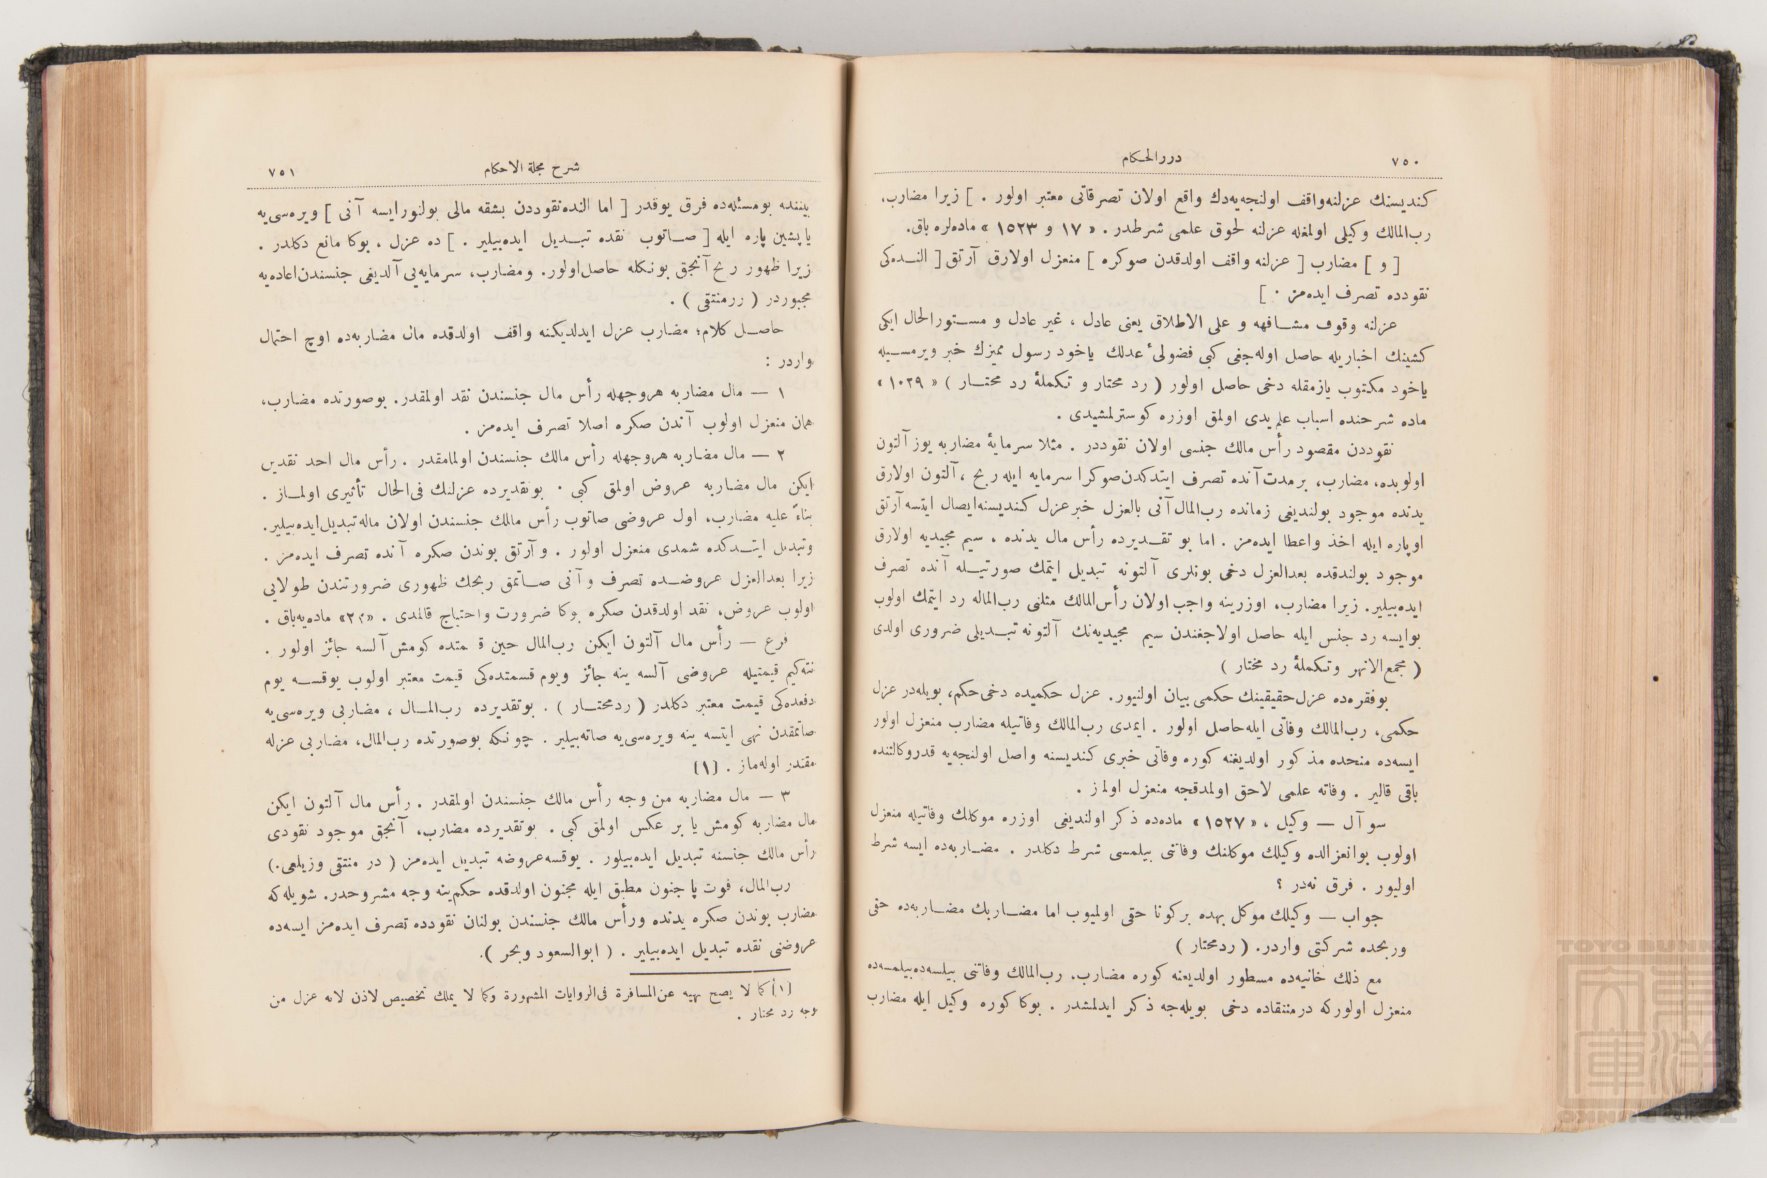 ٧٥٠
دررالحكام
كنديسنك عزلنه واقف اولنجه‌يه‌دك واقع اولان تصرفاتى معتبر اولور . ] زيرا مضارب،
رب‌المالك وكيلى اولمغله عزلنه لحوق علمى شرطدر . « ١٧ و ١٥٢٣ » ماده‌لره باق.
[ و ] مضارب [ عزلنه واقف اولدقدن صوكره ] منعزل اولارق آرتق [ النــده‌كى
نقودده تصرف ايده‌مز . ]
عزلنه وقوف مشــافهه و على الاطلاق يعنى عادل ، غير عادل و مســتورالحال ايكى
كشينك اخباريله حاصل اوله‌جغى كبى فضولئ عدلك ياخود رسول مميزك خبر ويرمســيله
ياخود مكتوب يازمقله دخى حاصل اولور ( رد محتار و تكملهٔ رد محتــار ) « ١٠٣٩ »
ماده شرحنده اسباب علم يدى اولمق اوزره كوسترلمشيدى .
نقوددن مقصود رأس مالك جنسى اولان نقوددر . مثلا سرمايهٔ مضاربه يوز آلتون
اولوبده، مضارب، برمدت آنده تصرف ايتدكدن‌صوكرا سرمايه ايله ربح ، آلتون اولارق
يدنده موجود بولنديغى زمانده رب‌المال آنى بالعزل خبرعزل كنديسنه ايصال ايتسه آرتق
اوپاره ايله اخذ واعطا ايده‌مز . اما بو تقــديرده رأس مال يدنده ، سيم مجيديه اولارق
موجود بولندقده بعدالعزل دخى بونلرى آلتونه تبديل ايتمك صورتيــله آنده تصرف
ايده‌بيلير. زيرا مضارب، اوزرينه واجب اولان رأس‌المالك مثلنى رب‌الماله رد ايتمك اولوب
بوايسه رد جنس ايله حاصل اولاجغندن سيم مجيديه‌نك آلتونه تبــديلى ضرورى اولدى
( مجمع‌الانهر وتكملهٔ رد محتار )
بوفقره‌ده عزل‌حقيقينك حكمى بيان اولنيور. عزل حكميده دخى‌حكم، بويله‌در عزل
حكمى، رب‌المالك وفاتى ايله حاصل اولور . ايمدى رب‌المالك وفاتيله مضارب منعزل اولور
ايسه‌ده متحده مذكور اولديغنه كوره وفاتى خبرى كنديسنه واصل اولنجه‌يه قدروكالتنده
باقى قالير . وفاته علمى لاحق اولمدقجه منعزل اولماز .
سوآل — وكيل ، « ١٥٢٧ » ماده‌ده ذكر اولنديغى اوزره موكلك وفاتيله منعزل
اولوب بوانعزالده وكيلك موكلنك وفاتنى بيلمسى شرط دكلدر . مضــاربه‌ده ايسه شرط
اوليور . فرق نه‌در ؟
جواب — وكيلك موكل بهده بركونا حقى اولميوب اما مضــاربك مضــاربه‌ده حقى
وربحده شركتى واردر. ( ردمحتار )
مع ذلك خانيه‌ده مسطور اولديغنه كوره مضارب، رب‌المالك وفاتنى بيلسه‌ده‌بيلمسه‌ده
منعزل اولوركه درمنتقاده دخى بويله‌جه ذكر ايدلمشدر . بوكا كوره وكيل ايله مضارب
شرح مجلة الاحكام
٧٥١
بيننده بومسئله‌ده فرق يوقدر [ اما النده نقوددن بشقه مالى بولنورايسه آنى ] ويره‌سى‌يه
يا پشين پاره ايله [ صــاتوب نقده تبــديل ايده‌بيلير . ] ده عزل ، بوكا مانع دكلدر .
زيرا ظهور ربح آنجق بونكله حاصل‌اولور. ومضارب، سرمايه‌يى آلديغى جنسندن‌اعاده‌يه
مجبوردر ( ررمنتقى ) .
حاصــل كلام؛ مضارب عزل ايدلديكنه واقف اولدقده مال مضاربه‌ده اوچ احتمال
واردر :
١ — مال مضاربه هروجهله رأس مال جنسندن نقد اولمقدر. بوصورتده مضارب،
همان منعزل اولوب آندن صكره اصلا تصرف ايده‌مز .
٢ — مال مضاربه هروجهله رأس مالك جنسندن اولمامقدر . رأس مال احد نقدين
ايكن مال مضاربه عروض اولمق كبى . بوتقديرده عزلنك فى‌الحال تأثيرى اولمــاز .
بناءً عليه مضارب، اول عروضى صاتوب رأس مالك جنسندن اولان ماله تبديل ايده‌بيلير.
وتبديل ايتــدكده شمدى منعزل اولور . وآرتق بوندن صكره آنده تصرف ايده‌مز .
زيرا بعدالعزل عروضــده تصرف وآنى صــاتمق ربحك ظهورى ضرورتندن طولايى
اولوب عروض، نقد اولدقدن صكره بوكا ضرورت واحتياج قالمدى . «٢٢» ماده‌يه‌باق .
فرع — رأس مال آلتون ايكن رب‌المال حين قسمتده كومش آلسه جائز اولور .
نته‌كيم قيمتيله عروضى آلسه ينه جائز ويوم قسمتده‌كى قيمت معتبر اولوب يوقســه يوم
دفعده‌كى قيمت معتبر دكلدر ( ردمحتــار ) . بوتقديرده رب‌المــال ، مضاربى ويره‌سى‌يه
صاتمقدن نهى ايتسه ينه ويره‌سى‌يه صاته‌بيلير . چونكه بوصورتده رب‌المال، مضاربى عزله
مقتدر اوله‌ماز . [١]
٣ — مال مضاربه من وجه رأس مالك جنسندن اولمقدر . رأس مال آلتون ايكن
مال مضاربه كومش يا بر عكس اولمق كبى . بوتقديرده مضارب، آنجق موجود نقودى
رأس مالك جنسنه تبديل ايده‌بيلور . يوقسه‌عروضه تبديل ايده‌مز ( در منتقى وزيلعى.)
رب‌المال، فوت يا جنون مطبق ايله مجنون اولدقده حكم‌ينه وجه مشروحدر. شويله‌كه
مضارب بوندن صكره يدنده ورأس مالك جنسندن بولنان نقودده تصرف ايده‌مز ايسه‌ده
عروضنى نقده تبديل ايده‌بيلير . ( ابوالسعود وبحر ).
[١] كما لا يصح نهيه عن‌المسافرة فى‌الروايات المشهورة وكما لا يملك تخصيص لاذن لانه عزل من
وجه رد محتار .
TOYO BUNKO
東洋文庫